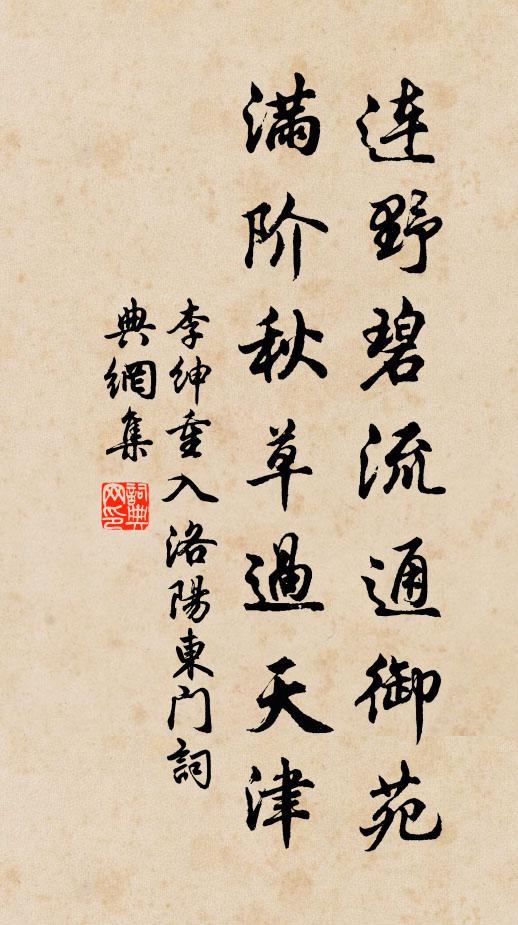 連野碧流通御苑
满阶秋草過天津
李紳重入洛陽東門詞
典網集
詞典网印